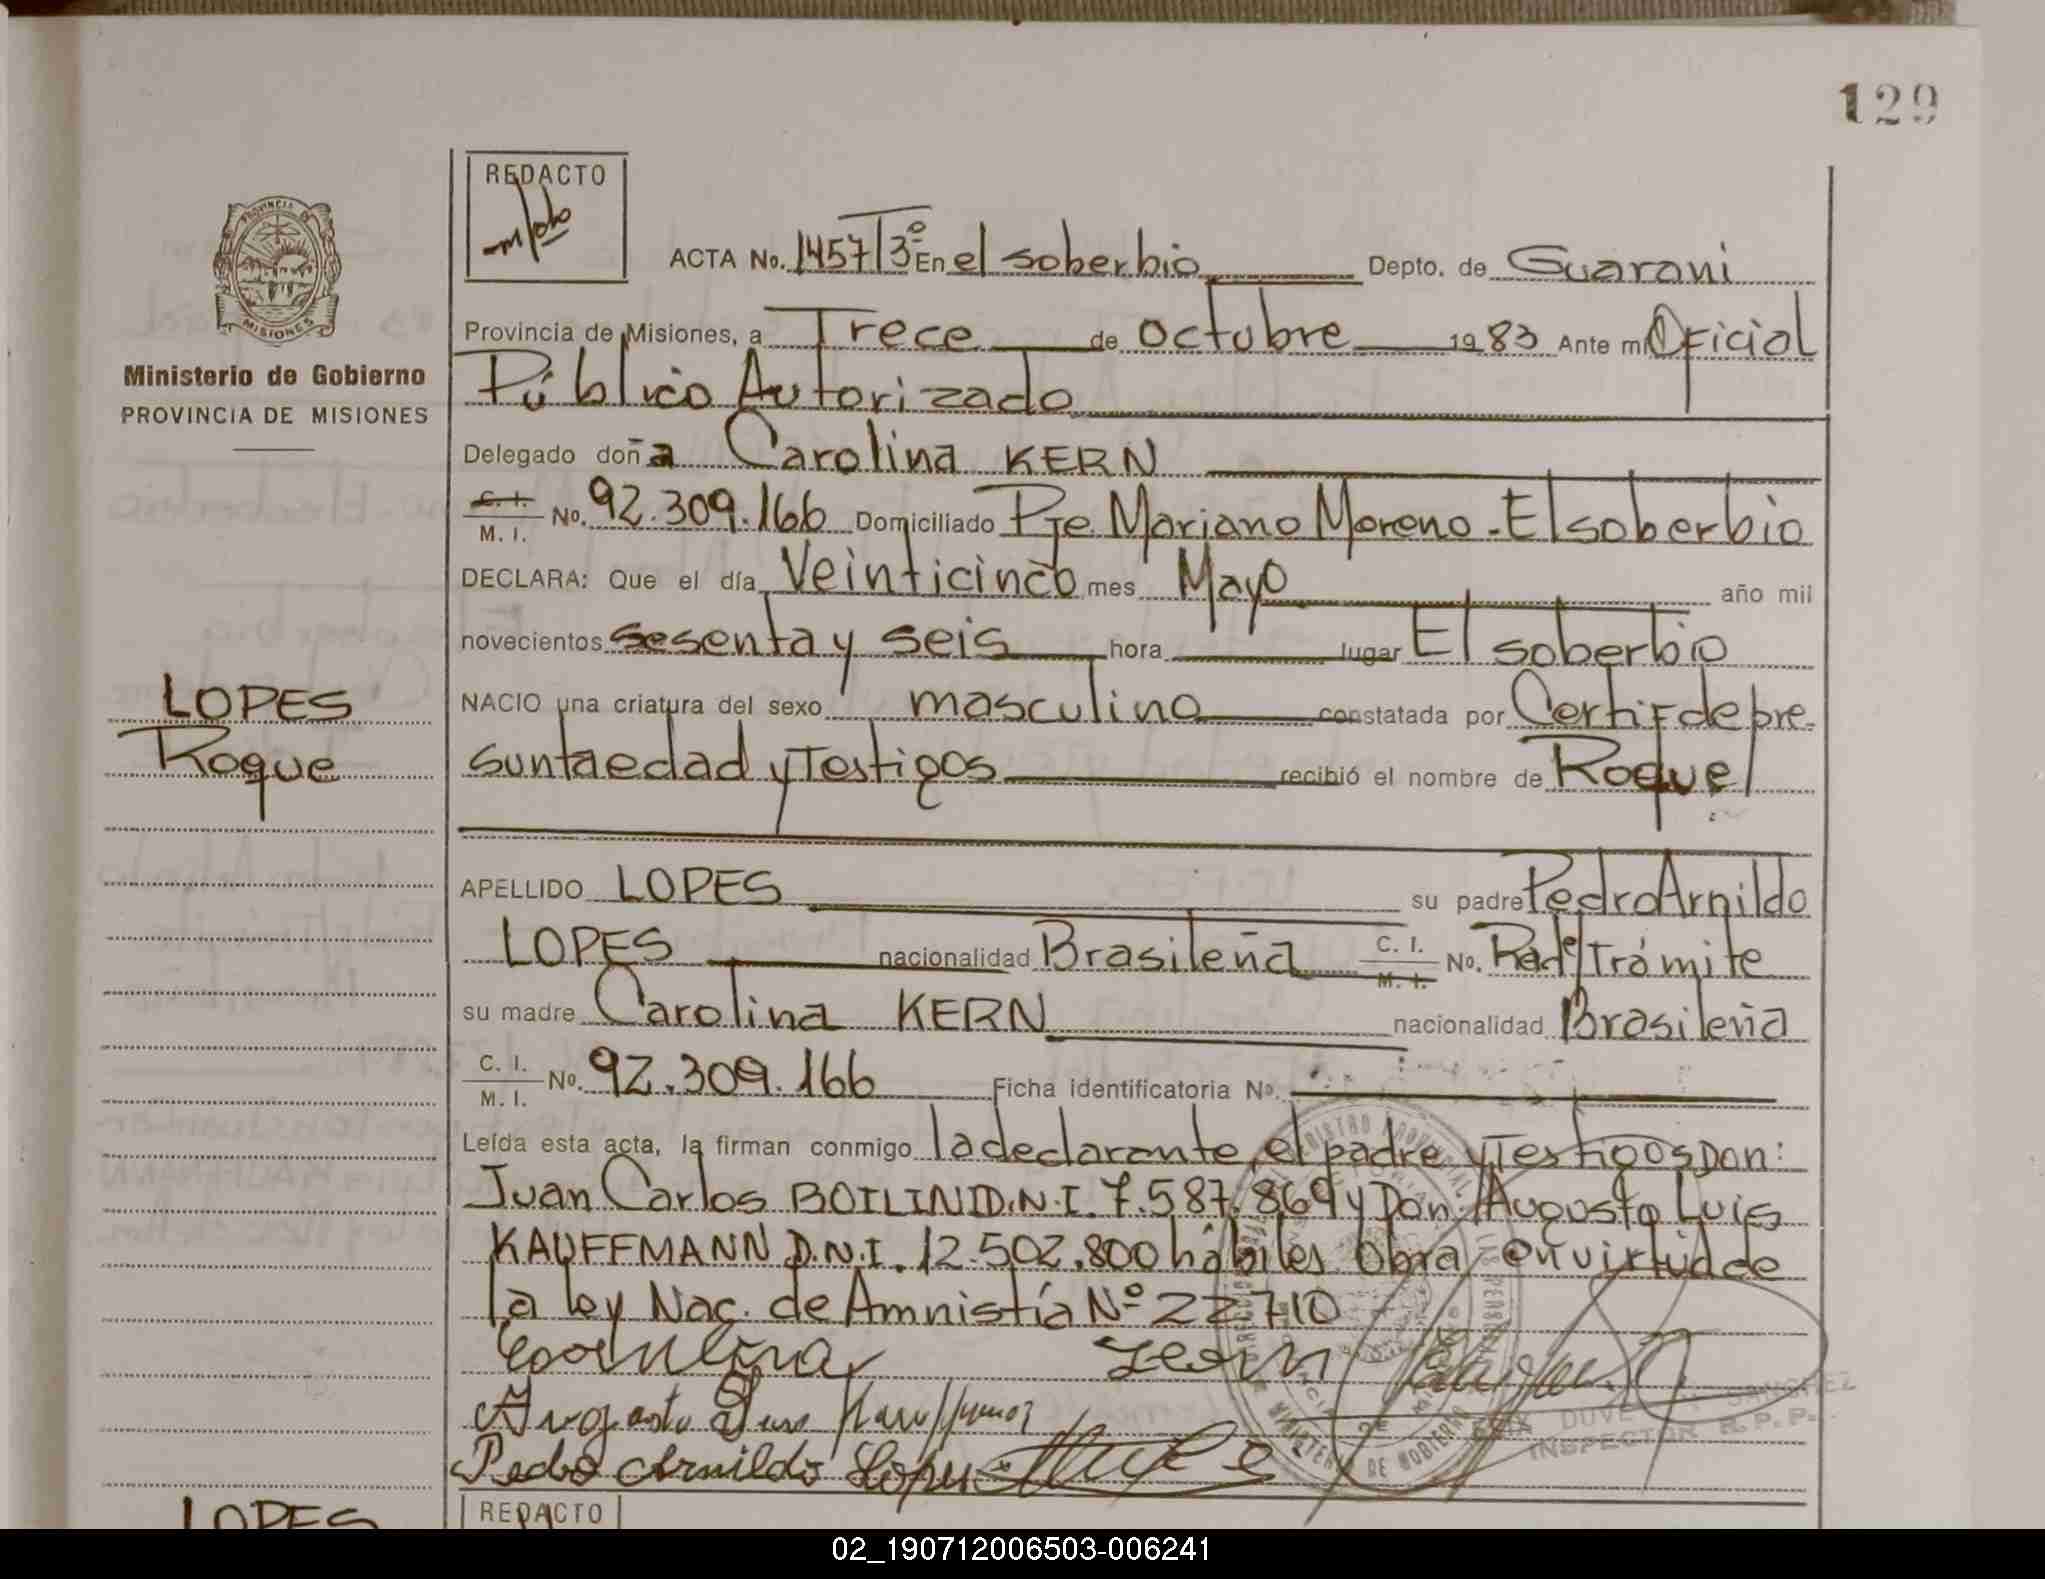 129
REDACTO
PROVINCIA DE
MISIONES
Ministerio de Gobierno
PROVINCIA DE MISIONES
ACTA No. 1457/T3º En el soberbio Depto. de Guarani
Provincia de Misiones, a Trece de octubre 1983 Ante mi Oficial
Público Autorizado
Delegado doña Carolina KERN
C. I. / M. I. No. 92.309.166 Domiciliado Pje. Mariano Moreno - El soberbio
DECLARA: Que el día Veinticinco mes Mayo año mil
novecientos sesenta y seis hora lugar El soberbio
LOPES
Roque
NACIO una criatura del sexo masculino constatada por Certif de pre-
sunta edad y Testigos recibió el nombre de Roque
APELLIDO LOPES su padre Pedro Arnildo
LOPES nacionalidad Brasileña C. I. / M. I. No. Rade/Trámite
su madre Carolina KERN nacionalidad Brasileña
C. I. / M. I. No. 92.309.166 Ficha identificatoria No.
Leída esta acta, la firman conmigo la declarante, el padre y Testigos Don:
Juan Carlos BOILINI D.N.I. 7.587.869 y Don Augusto Luis
KAUFFMANN D.N.I. 12.502.800 hábiles Obra en virtud de
la ley Nac. de Amnistía Nº 22710
Carolina Kern
Augusto Luis Kauffmann
Pedro Arnildo Lopes
SANCHEZ
INSPECTOR R.P.P.
REDACTO
LOPES
02_190712006503-006241